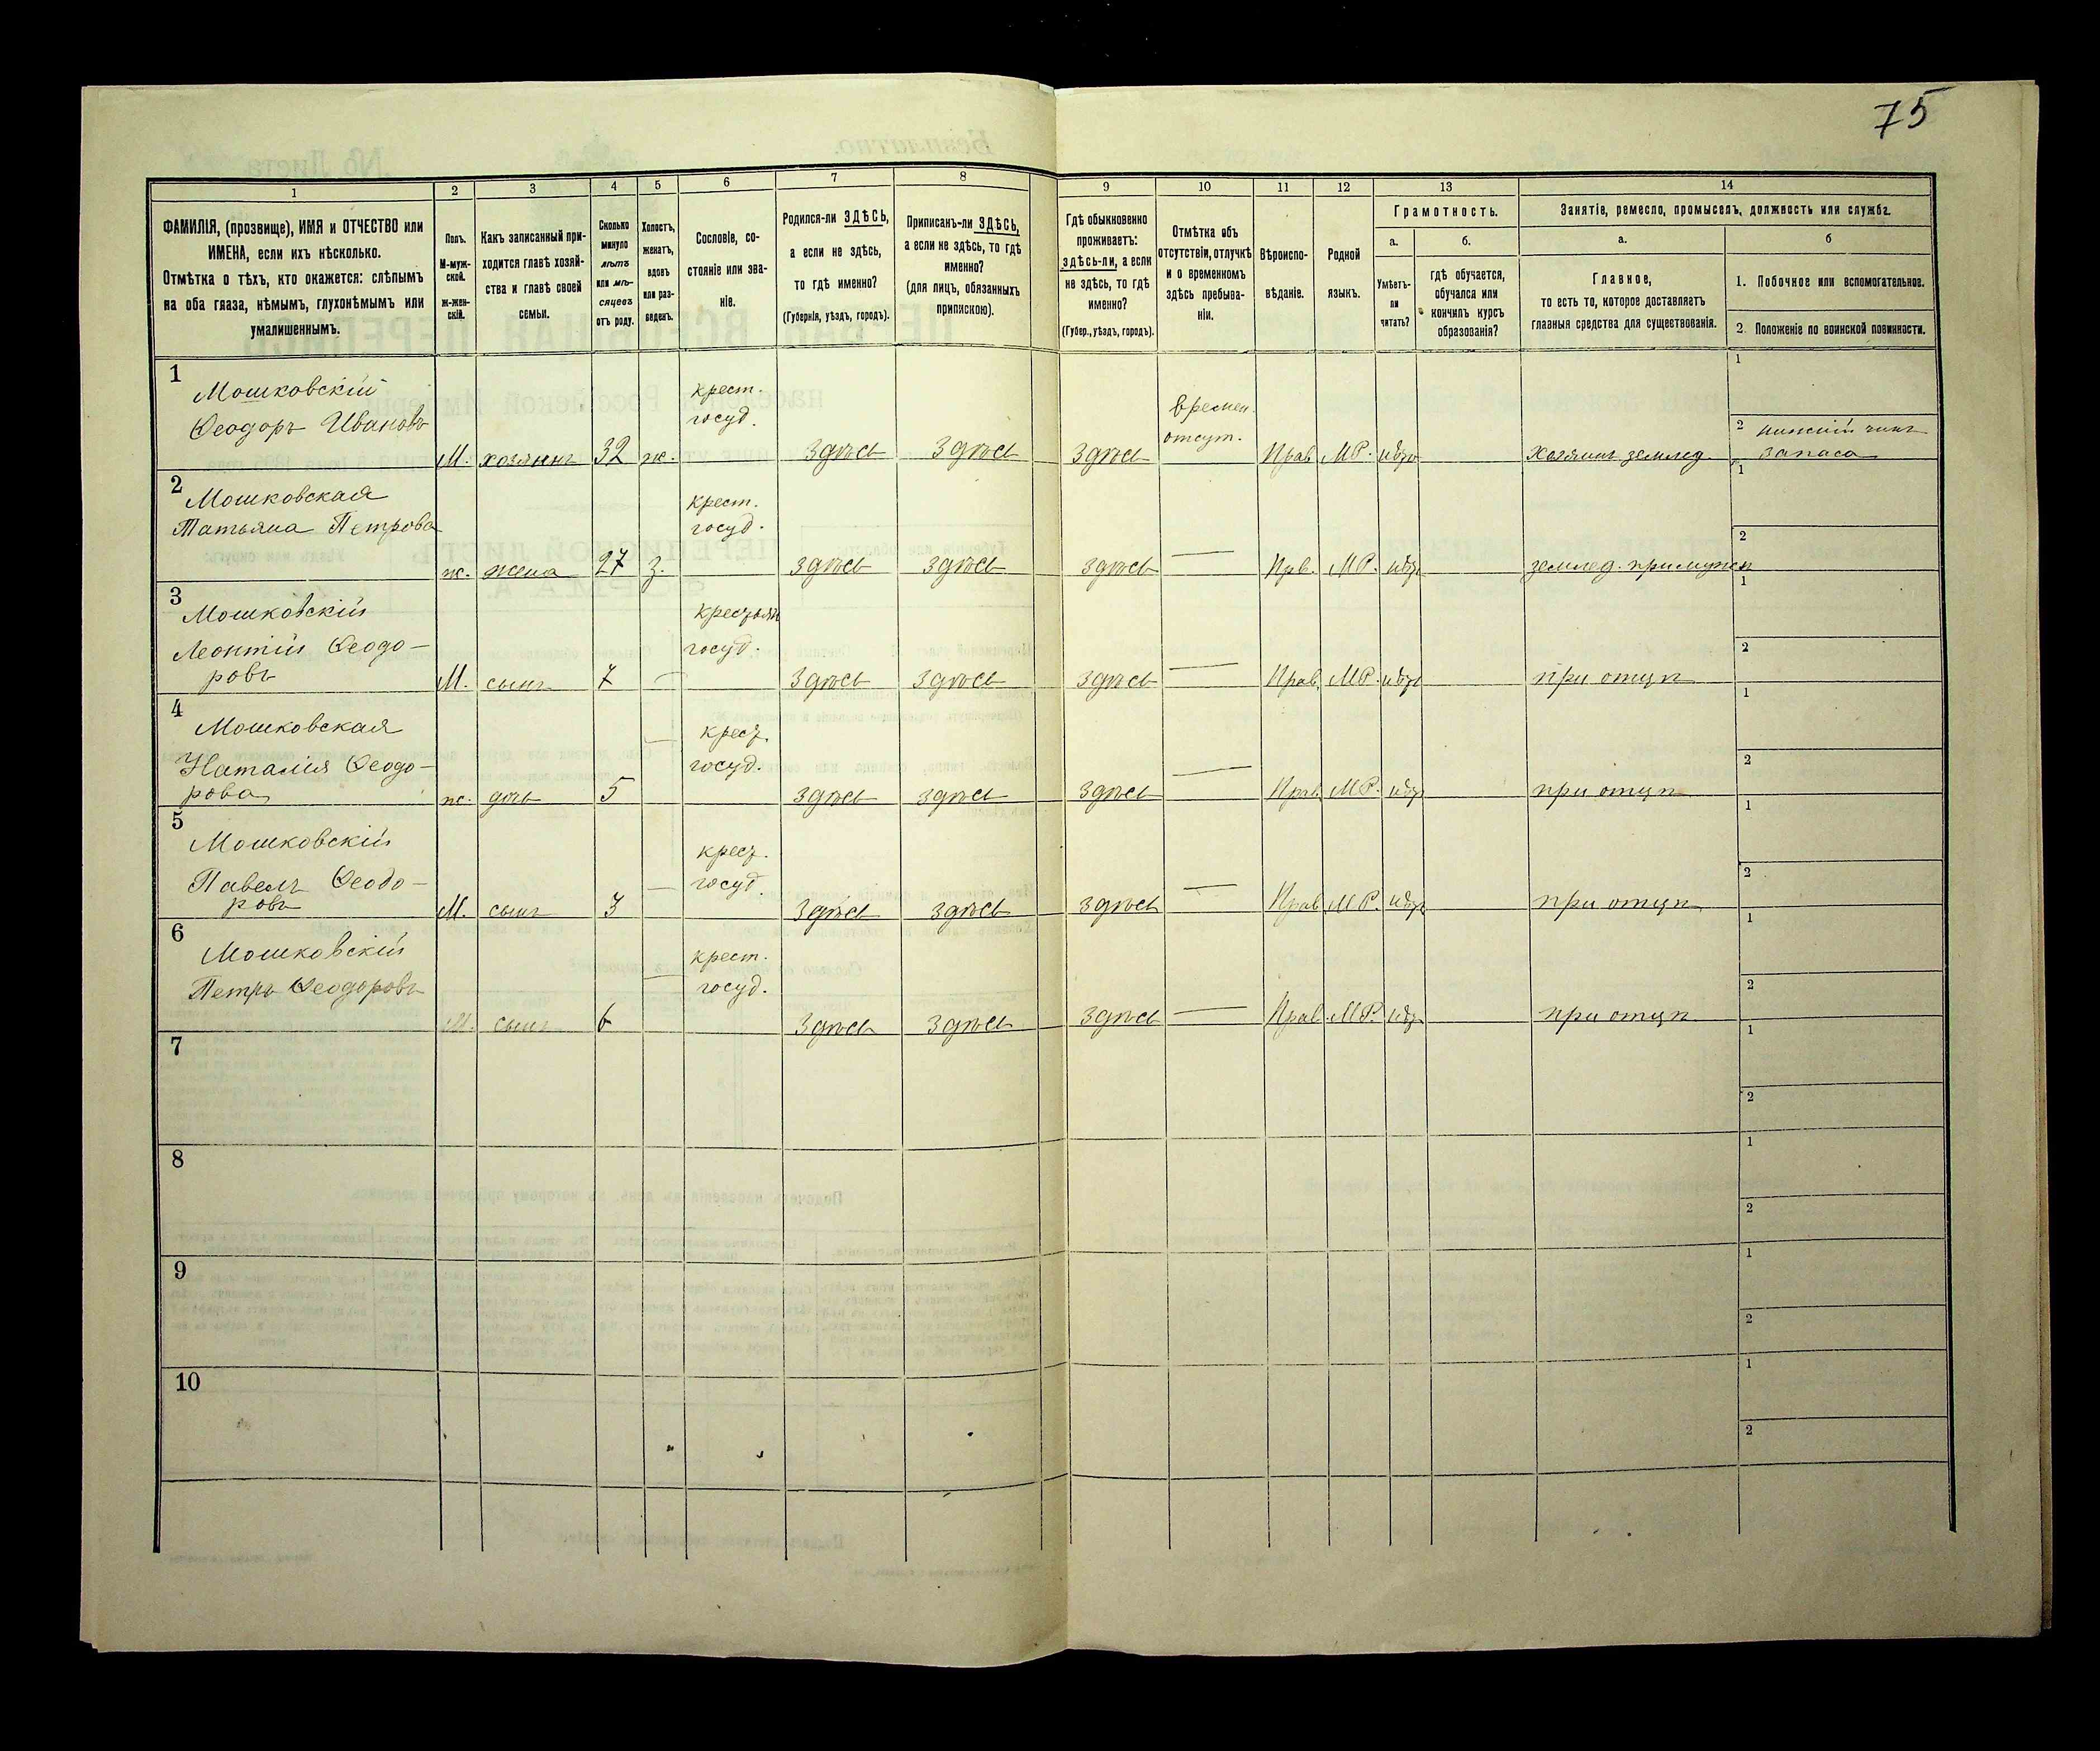 75
1 2 3 4 5 6 7 8 9 10 11 12 13 14
ФАМИЛІЯ, (прозвище), ИМЯ и ОТЧЕСТВО или
ИМЕНА, если ихъ нѣсколько.
Отмѣтка о тѣхъ, кто окажется: слѣпымъ
на оба глаза, нѣмымъ, глухонѣмымъ или
умалишеннымъ.
Полъ.
М-муж-
ской.
ж-жен-
скій.
Какъ записанный при-
ходится главѣ хозяй-
ства и главѣ своей
семьи.
Сколько
минуло
лѣтъ
или мѣ-
сяцевъ
отъ роду.
Холостъ,
женатъ,
вдовъ
или раз-
веденъ.
Сословіе, со-
стояніе или зва-
ніе.
Родился-ли ЗДѢСЬ,
а если не здѣсь,
то гдѣ именно?
(Губернія, уѣздъ, городъ).
Приписанъ-ли ЗДѢСЬ,
а если не здѣсь, то гдѣ
именно?
(для лицъ, обязанныхъ
припискою).
Гдѣ обыкновенно
проживаетъ:
здѣсь-ли, а если
не здѣсь, то гдѣ
именно?
(Губер., уѣздъ, городъ).
Отмѣтка объ
отсутствіи, отлучкѣ
и о временномъ
здѣсь пребыва-
ніи.
Вѣроиспо-
вѣданіе.
Родной
языкъ.
Грамотность.
а.
Умѣетъ-
ли
читать?
б.
гдѣ обучается,
обучался или
кончилъ курсъ
образованія?
Занятіе, ремесло, промыселъ, должность или служба.
а.
Главное,
то есть то, которое доставляетъ
главныя средства для существованія.
б
1. Побочное или вспомогательное.
2. Положеніе по воинской повинности.
1
Мошковскій
Ѳеодоръ Ивановъ
М. хозяинъ 32 ж.
крест.
госуд.
здѣсь здѣсь здѣсь
времен.
отсут.
Прав. МР.
Хозяинъ землед.
1
2 нижній чинъ
запаса
2
Мошковская
Татьяна Петрова
ж. жена 27 з.
крест.
госуд.
здѣсь здѣсь здѣсь — Прв. МР.
землед. при мужѣ
1
2
3
Мошковскій
Леонтій Ѳеодо-
ровъ
М. сынъ 7 —
госуд.
здѣсь здѣсь здѣсь — Прав. МР.
при отцѣ
1
2
4
Мошковская
Наталія Ѳеодо-
рова
ж. дочь 5 —
госуд.
здѣсь здѣсь здѣсь — Прав. МР.
при отцѣ
1
2
5
Мошковскій
Павелъ Ѳеодо-
ровъ
М. сынъ 3 —
госуд.
здѣсь здѣсь здѣсь — Прав. МР.
при отцѣ
1
2
6
Мошковскій
Петръ Ѳеодоровъ
М. сынъ —
крест.
госуд.
здѣсь здѣсь здѣсь — Прав. МР.
при отцѣ
1
2
7
1
2
8
1
2
9
1
2
10
1
2